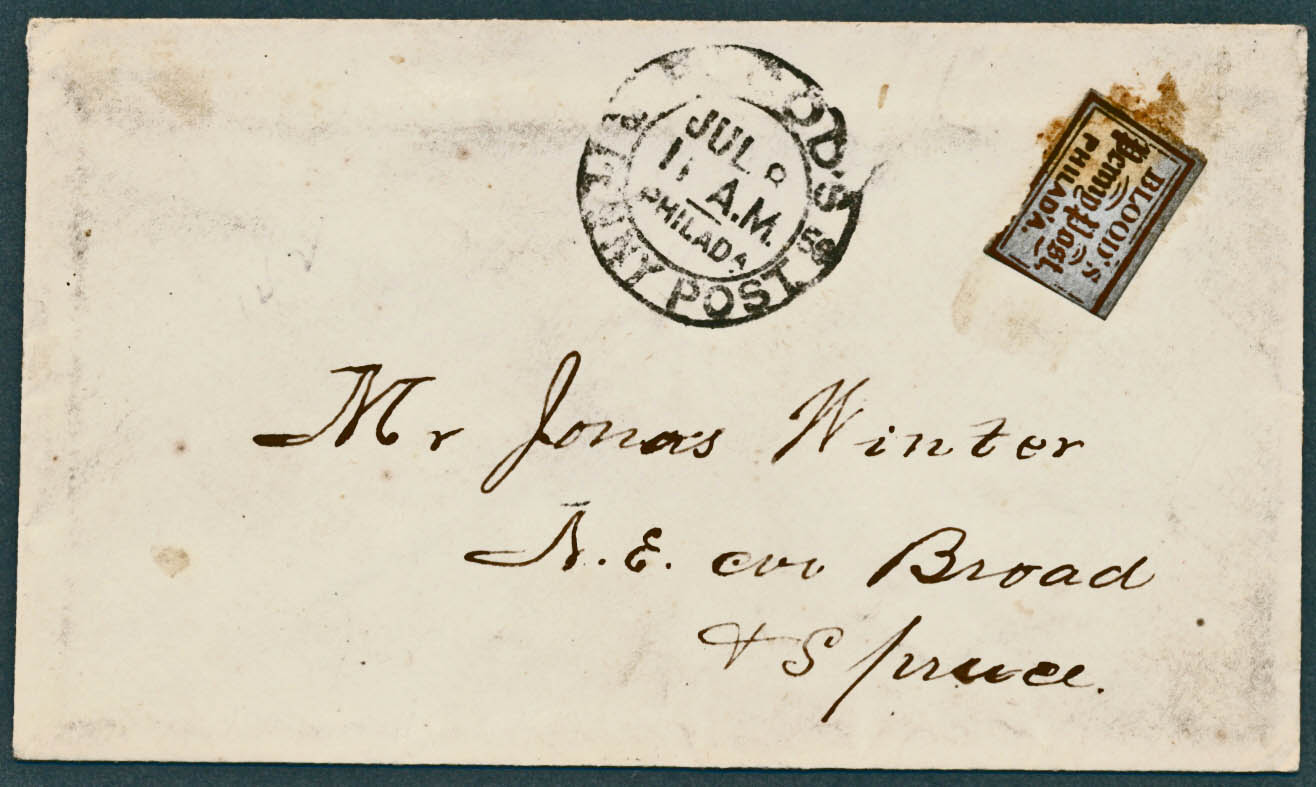 BLOOD'S PENNY POST
JUL
11 A.M.
PHILADA
BLOOD'S
Penny Post
PHILAD'A.
Mr Jonas Winter
N.E. cor Broad
& Spruce.